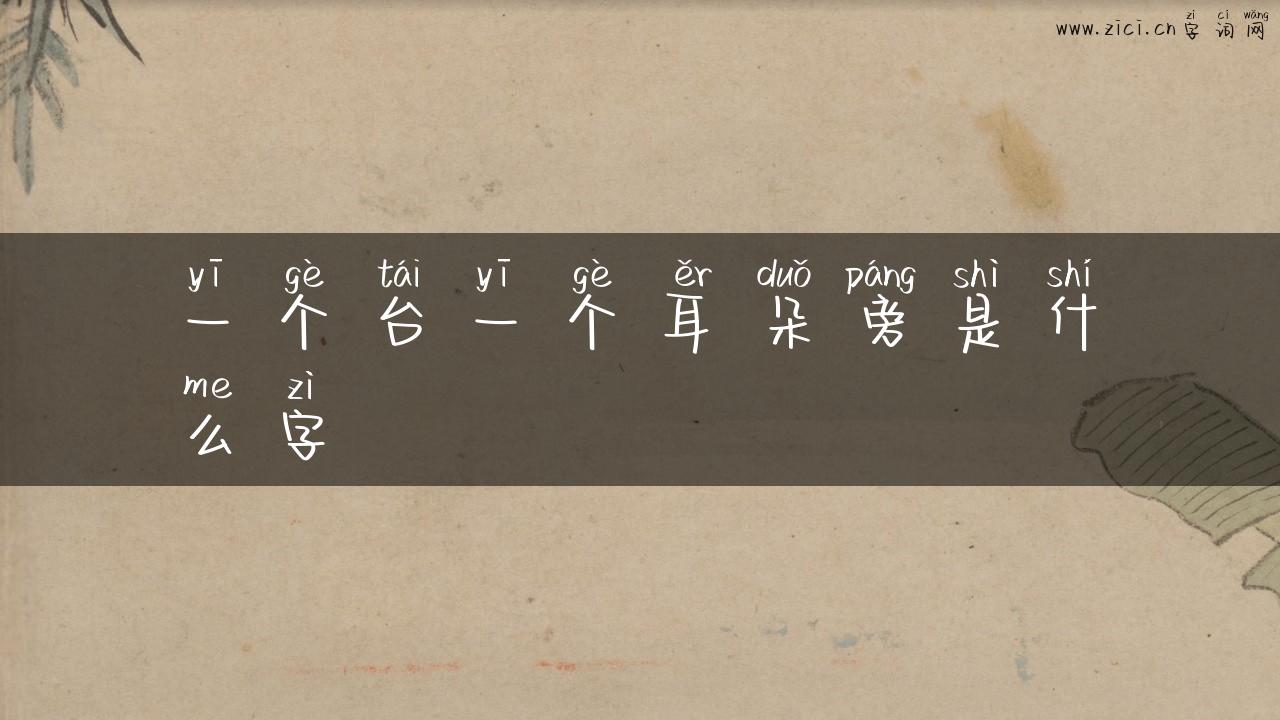 zì cí wǎng
www.zici.cn 字词网
yī gè tái yī gè ěr duǒ páng shì shí
一个台一个耳朵旁是什
me zì
么字